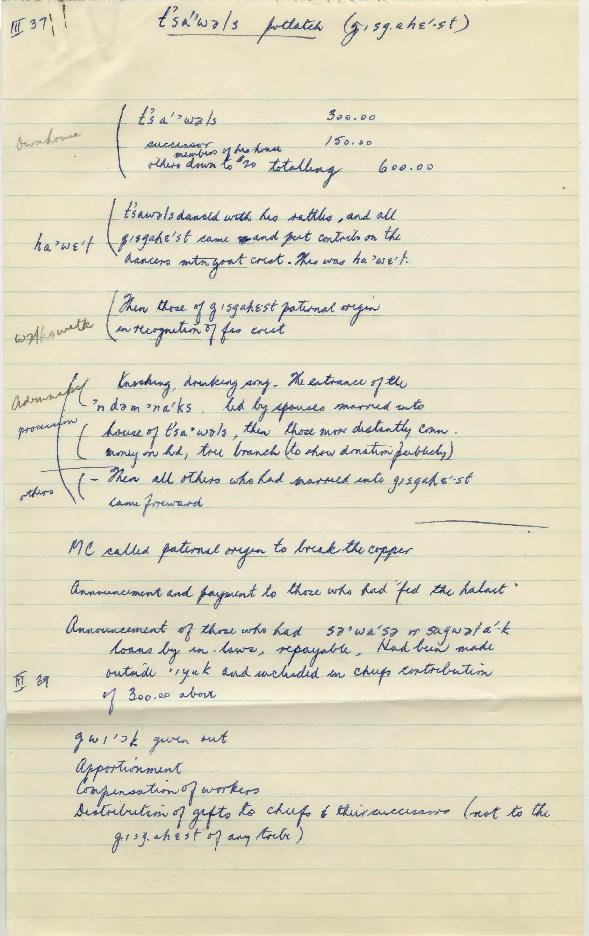 III 37
t's'a'ʼwəls potlatch (gisg.ahe'-st)
t's'a'ʼwəls 300.00
Own house
successor 150.00
members of his house
others down to $20 totalling 600.00
t'sawəls danced with his rattles, and all
gisgahe'st came and put contribs on the
ha'we'ł
dancers mtn goat crest. This was ha'we'ł.
Then those of gisgahest paternal origin
in recognition of his crest
Knocking, drinking song. The entrance of the
'ndəm'na'ks. led by spouses married into
procession
house of t'sa'wə'ls, then those more distantly conn.
money on hd, tree branch (to show donation publicly)
– Then all others who had married into gisgahe'-st
others
came foreward
MC called paternal origin to break the copper
Announcement and payment to those who had "fed the halact"
Announcement of those who had sə'wa'sə or sagwəłá'-k
loans by in-laws, repayable, Had been made
outside 'iyuk and included in chiefs contribution
III 39
of 300.00 above
gwi'ək given out
Apportionment
Compensation of workers
Distribution of gifts to chiefs & their successors (not to the
gisg.ahest of any tribe)